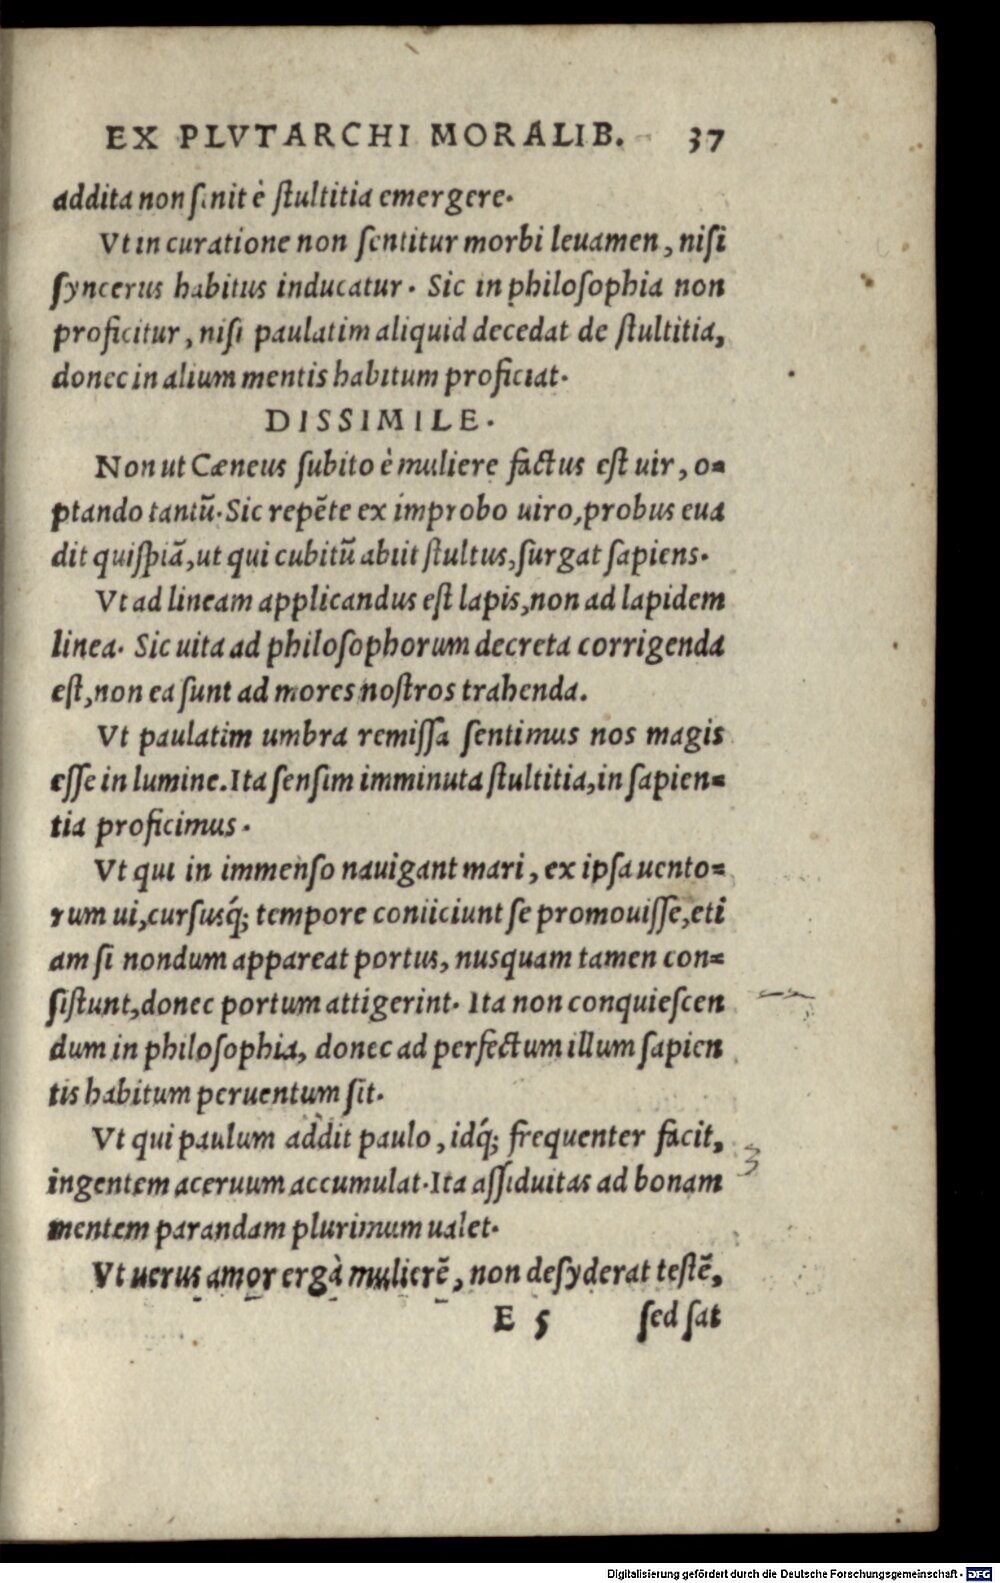 EX PLVTARCHI MORALIB. 37
addita non sinit è stultitia emergere.
Vt in curatione non sentitur morbi leuamen, nisi
syncerus habitus inducatur. Sic in philosophia non
proficitur, nisi paulatim aliquid decedat de stultitia,
donec in alium mentis habitum proficiat.
DISSIMILE.
Non ut Cæneus subito è muliere factus est uir, o=
ptando tantũ. Sic repẽte ex improbo uiro, probus eua
dit quispiã, ut qui cubitũ abiit stultus, surgat sapiens.
Vt ad lineam applicandus est lapis, non ad lapidem
linea. Sic uita ad philosophorum decreta corrigenda
est, non ea sunt ad mores nostros trahenda.
Vt paulatim umbra remissa sentimus nos magis
esse in lumine. Ita sensim imminuta stultitia, in sapien=
tia proficimus.
Vt qui in immenso nauigant mari, ex ipsa uento=
rum ui, cursusq́; tempore coniiciunt se promouisse, eti
am si nondum appareat portus, nusquam tamen con=
sistunt, donec portum attigerint. Ita non conquiescen
dum in philosophia, donec ad perfectum illum sapien
tis habitum peruentum sit.
Vt qui paulum addit paulo, idq́; frequenter facit,
ingentem aceruum accumulat. Ita assiduitas ad bonam
mentem parandam plurimum ualet.
Vt uerus amor ergà mulierẽ, non desyderat testẽ,
E 5 sed sat
3
Digitalisierung gefördert durch die Deutsche Forschungsgemeinschaft - DFG